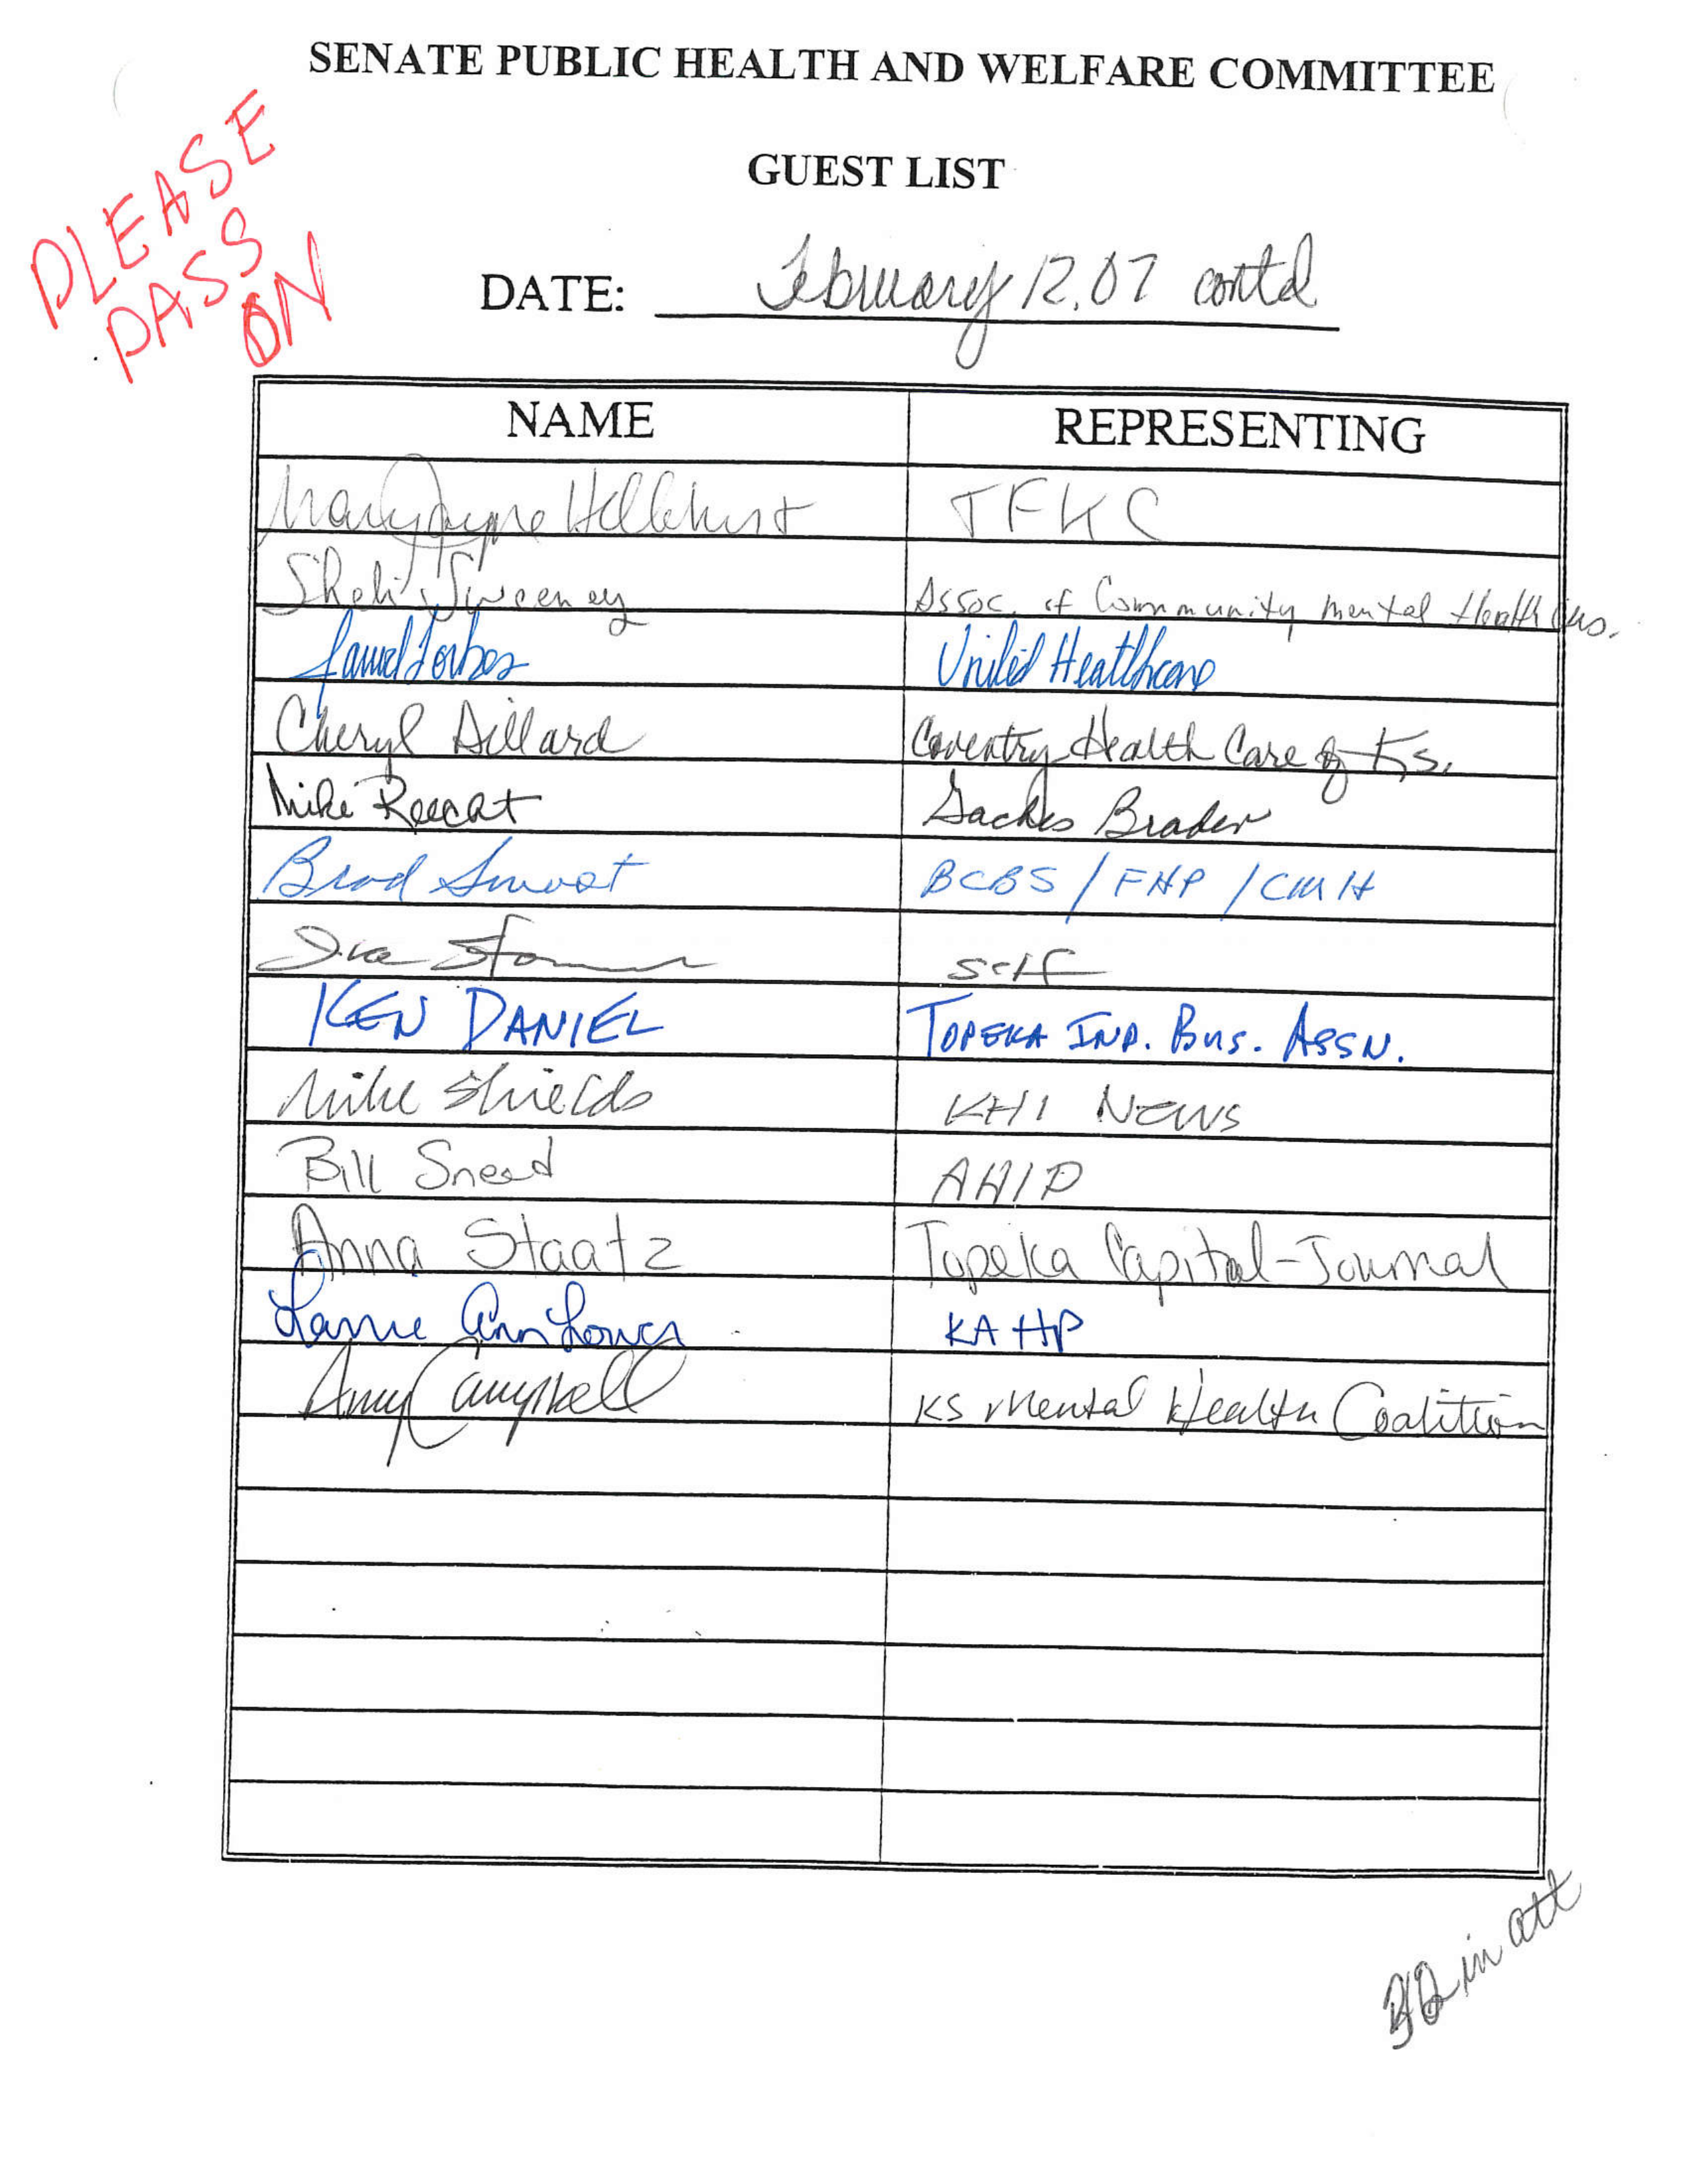 SENATE PUBLIC HEALTH AND WELFARE COMMITTEE
PLEASE
PASS
ON
GUEST LIST
DATE: February 12, 07 contd
NAME REPRESENTING
TFKC
Sweeney Assoc. of Community Mental Health
Forbes United Healthcare
Cheryl Dillard Coventry Health Care of Ks.
Mike Reecht Braden
Brad Smoot BCBS / FHP / CMH
self
KEN DANIEL TOPEKA IND. BUS. ASSN.
Mike Shields KHI NEWS
Bill Sneed AHIP
Anna Staatz Topeka Capital-Journal
Larrie Ann Lower KAHP
Amy Campbell KS Mental Health Coalition
in att